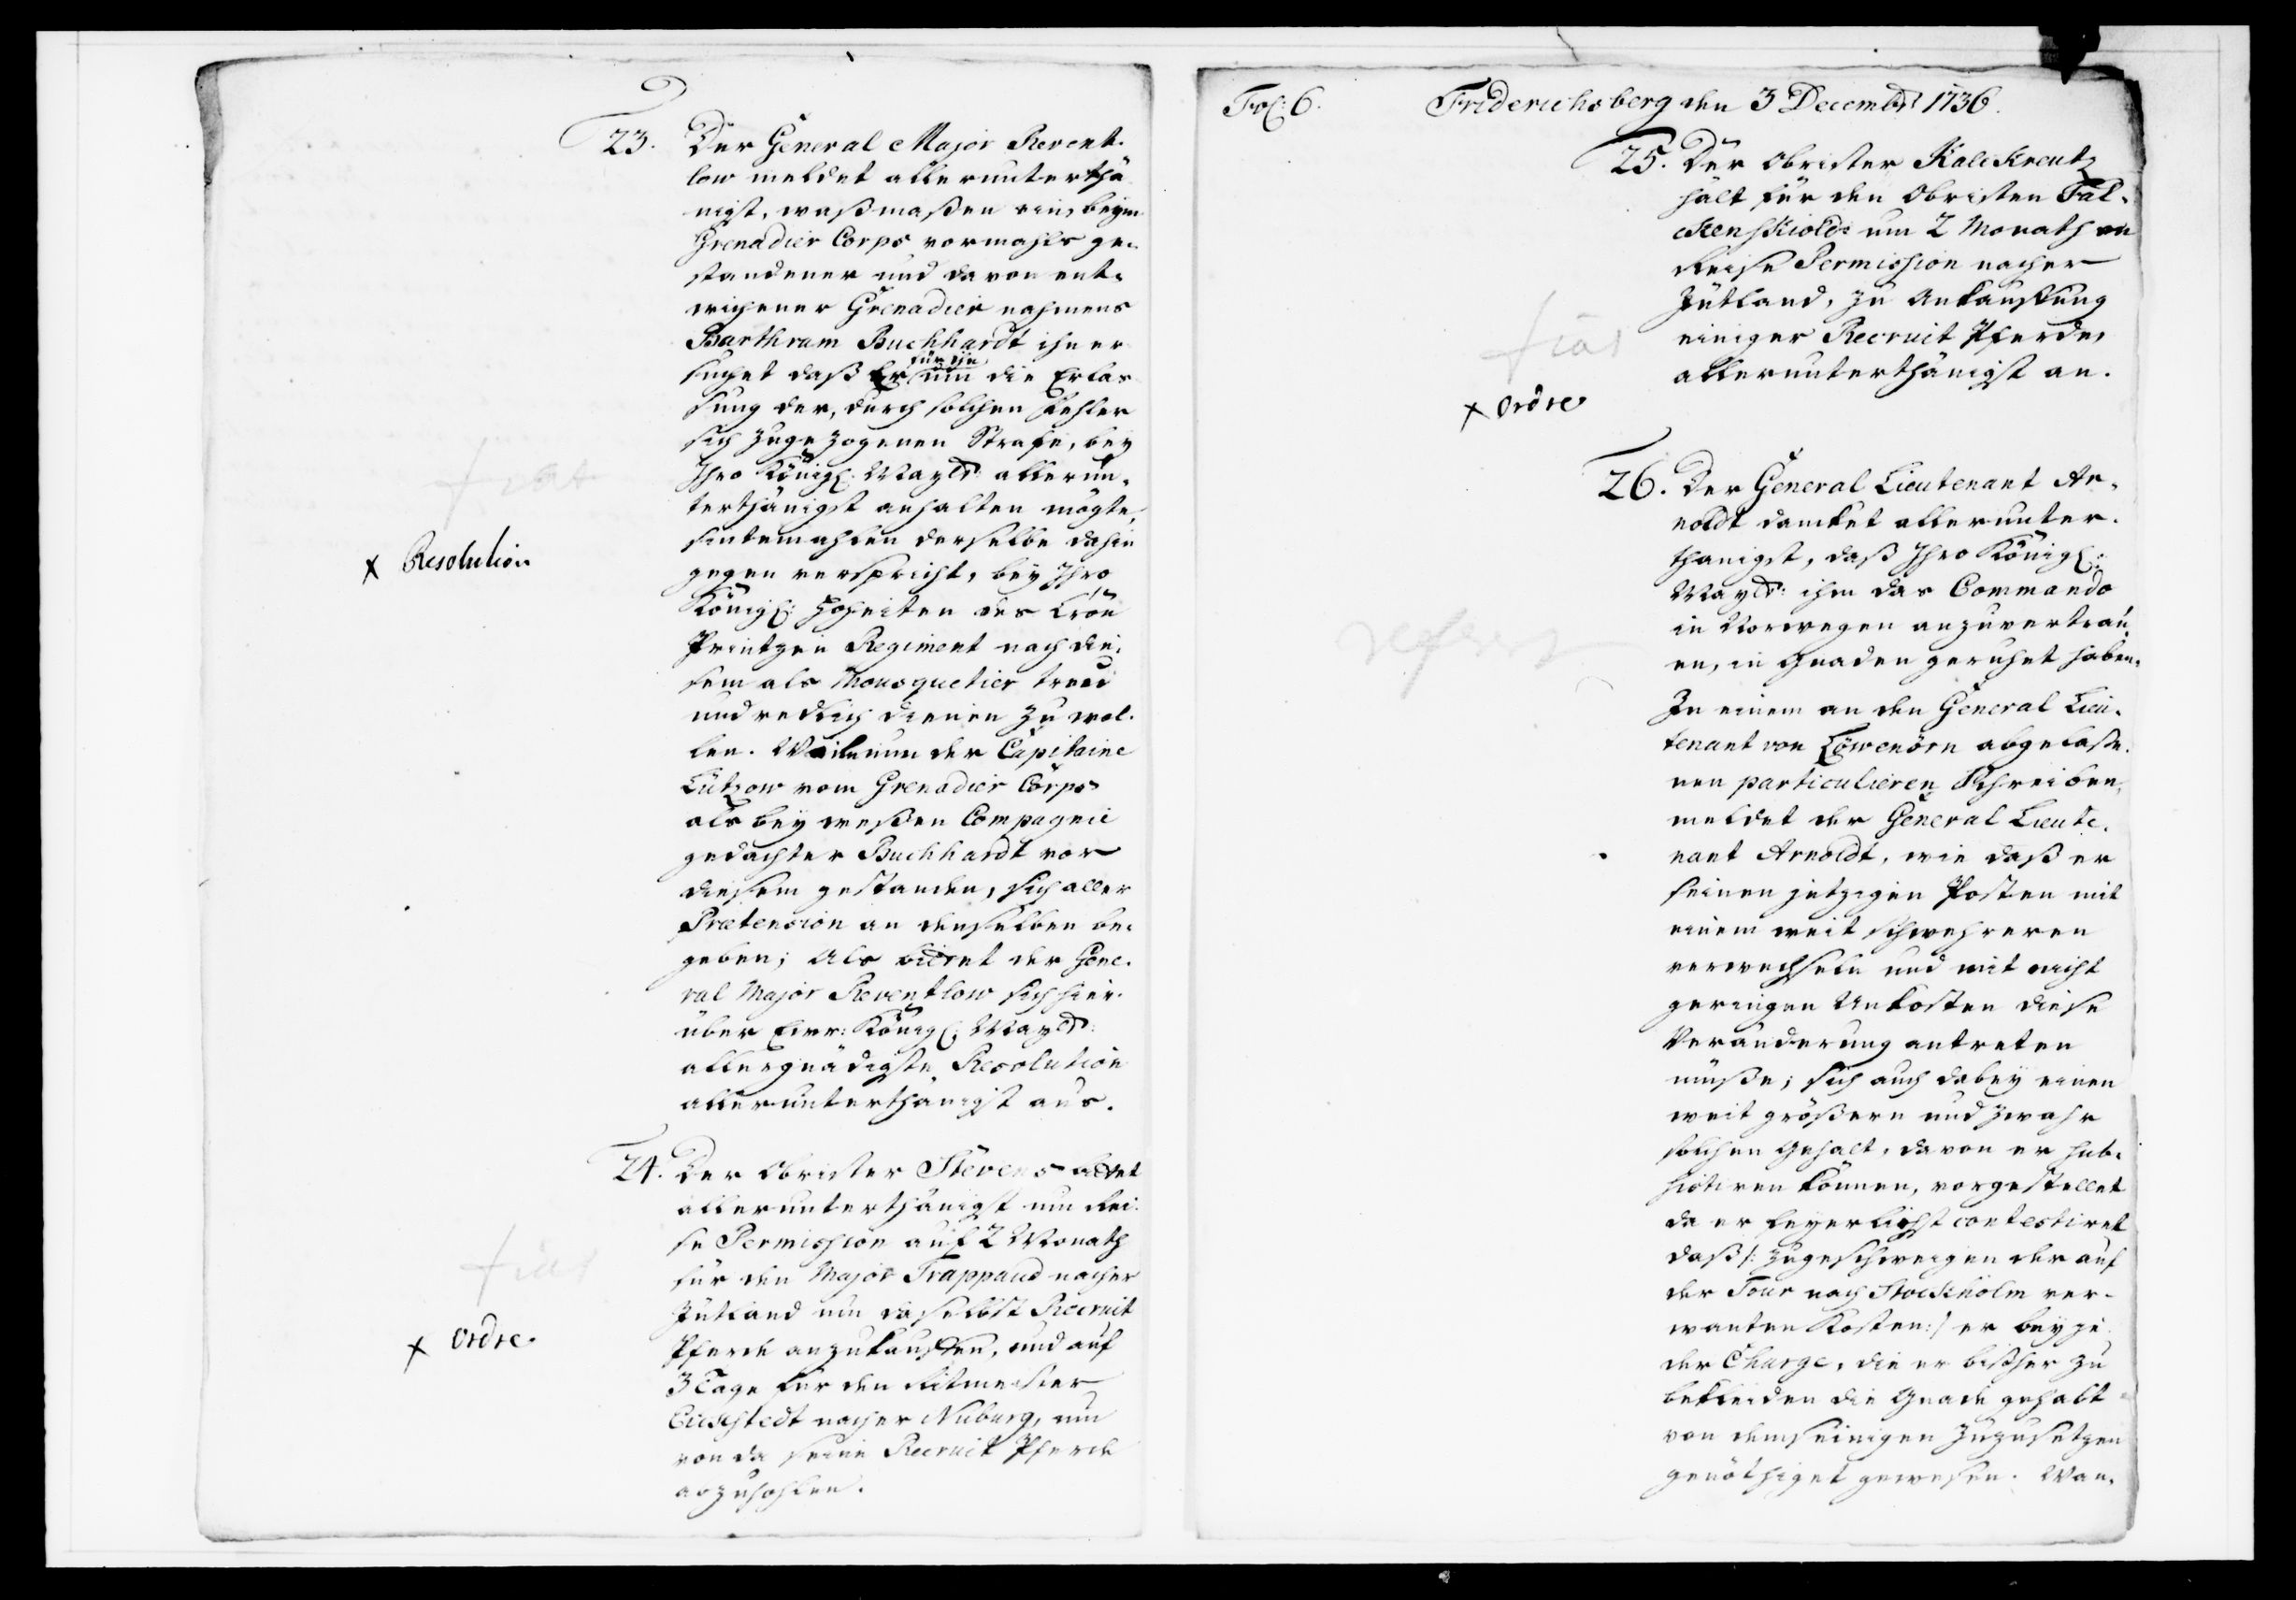 23. Der General Major Revent-
low meldet allerunterthä
nigst, waßmaßen ein, beym
Grenadier Corps vormahls ge-
standener und davon ent-
wichener Grenadier nahmens
Barthram Buchhardt ihn er
suchet daß Er für ihn um die Erlas
sung der, durch solchen Fehler
sich zugezogenen Strafe, bey
Ihro Königl: Mayt: allerun-
terthänigst anhalten mögte,
sintemahlen derselbe dahin
gegen verspricht, bey Ihro
Königl: Hoheiten des Cron
Printzen Regiment nach die-
sem als Mousquetier treu
und redlich dienen zu wol-
len. Weil nun der Capitaine
Lützow vom Grenadier Corps
als bey weßen Compagnie
gedachter Buchhardt vor
diesem gestanden, sich aller
Prætension an denselben be-
geben; Als bittet der Gene-
ral Major Reventlow sich hier-
über Ewr: Königl: Mayt:
allergnädigste Resolution
allerunterthänigst aus.
fiat
x Resolution
24. Der Obrister Stevens bittet
allerunterthänigst um Rei-
se Permission auf 2 Monath
für den Major Trappaud nacher
Jütland um daselbst Recruit
Pferde anzukauffen, und auf
3 Tage für den Ritmeister
Eickstedt nacher Nyburg, um
von da seine Recruit Pferde
abzuhohlen.
fiat
x Ordre
Fol: 6. Friderichsberg den 3 Decembr 1736.
25. Der Obrister Kalckreutz
hält für den Obristen Fal-
ckenskiold um 2 Monath
Reise Permission nacher
Jütland, zu Ankauffung
einiger Recruit Pferde,
allerunterthänigst an.
fiat
x Ordre
26. Der General Lieutenant Ar-
noldt dancket allerunter-
thänigst, daß Ihro Königl:
Mayt: ihm das Commando
in Norwegen anzuvertrau
en, in Gnaden geruhet haben.
In einem an den General Lieu-
tenant von Löwenörn abgelaße-
nen particulieren Schreiben,
meldet der General Lieute-
nant Arnoldt, wie daß er
seinen jetzigen Posten mit
einem weit schwehreren
verwechseln und mit nicht
geringen Unkosten diese
Veränderung antreten
müße; sich auch dabey einen
weit größern und zwahr
solchen Gehalt, davon er sub-
sistiren können, vorgestellet
da er feyerlichst contestiret
daß /: zugeschweigen der auf
der Tour nach Stockholm ver-
wanten Kosten :/ er bey je-
der Charge, die er bißher zu
bekleiden die Gnade gehabt
von dem seinigen zuzusetzen
genöthiget gewesen. Wan-